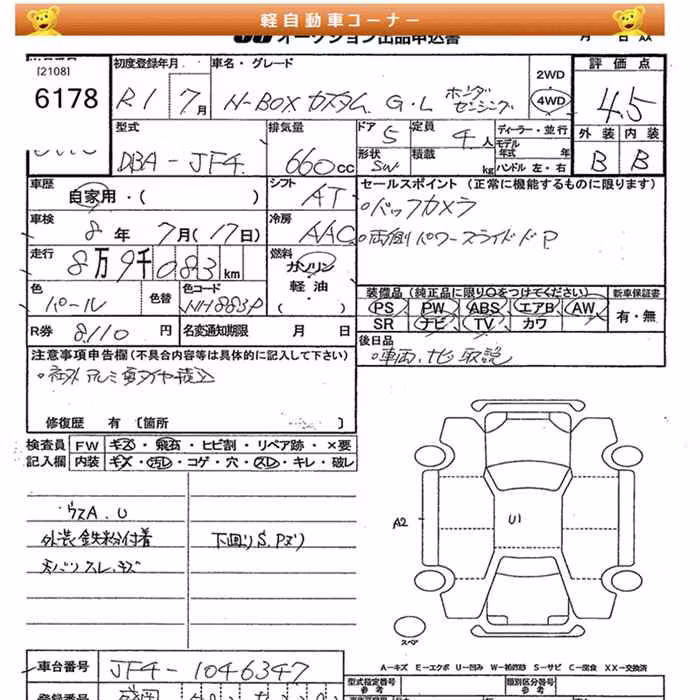 軽自動車コーナー
オークション出品申込書
[2108]
6178
初度登録年月
R1 7月
車名・グレード
N-BOX カスタム G・L ホンダセンシング
2WD
4WD
評価点
4.5
外装 内装
B B
型式
DBA-JF4
排気量
660cc
ドア
5
定員
4人
形状
SW
積載
kg
ディーラー・並行
モデル年式 年
ハンドル 左・右
車歴
自家用・( )
シフト
AT
車検
8年 7月(17日)
冷房
AAC
走行
8万9千083km
燃料
ガソリン
軽油
( )
色
パール
色替
色コード
NH883P
R券
8110円
名変通知期限 月 日
セールスポイント(正常に機能するものに限ります)
○バックカメラ
○両側パワースライドドア
装備品(純正品に限り○をつけてください)
PS PW ABS エアB AW
SR ナビ TV カワ
新車保証書
有・無
後日品
○車両、ナビ取説
注意事項申告欄(不具合内容等は具体的に記入して下さい)
○社外アルミ夏タイヤ積込
修復歴 有 [箇所 ]
検査員記入欄
FW キズ・飛石・ヒビ割・リペア跡・×要
内装 キズ・汚レ・コゲ・穴・スレ・キレ・破レ
外装鉄粉付着
下回りS.Pヌリ
A2
U1
スペア
A-キズ E-エクボ U-凹み W-補修跡 S-サビ C-腐食 XX-交換済
車台番号
JF4-1046347
型式指定番号
参考
類別区分番号
参考
登録番号